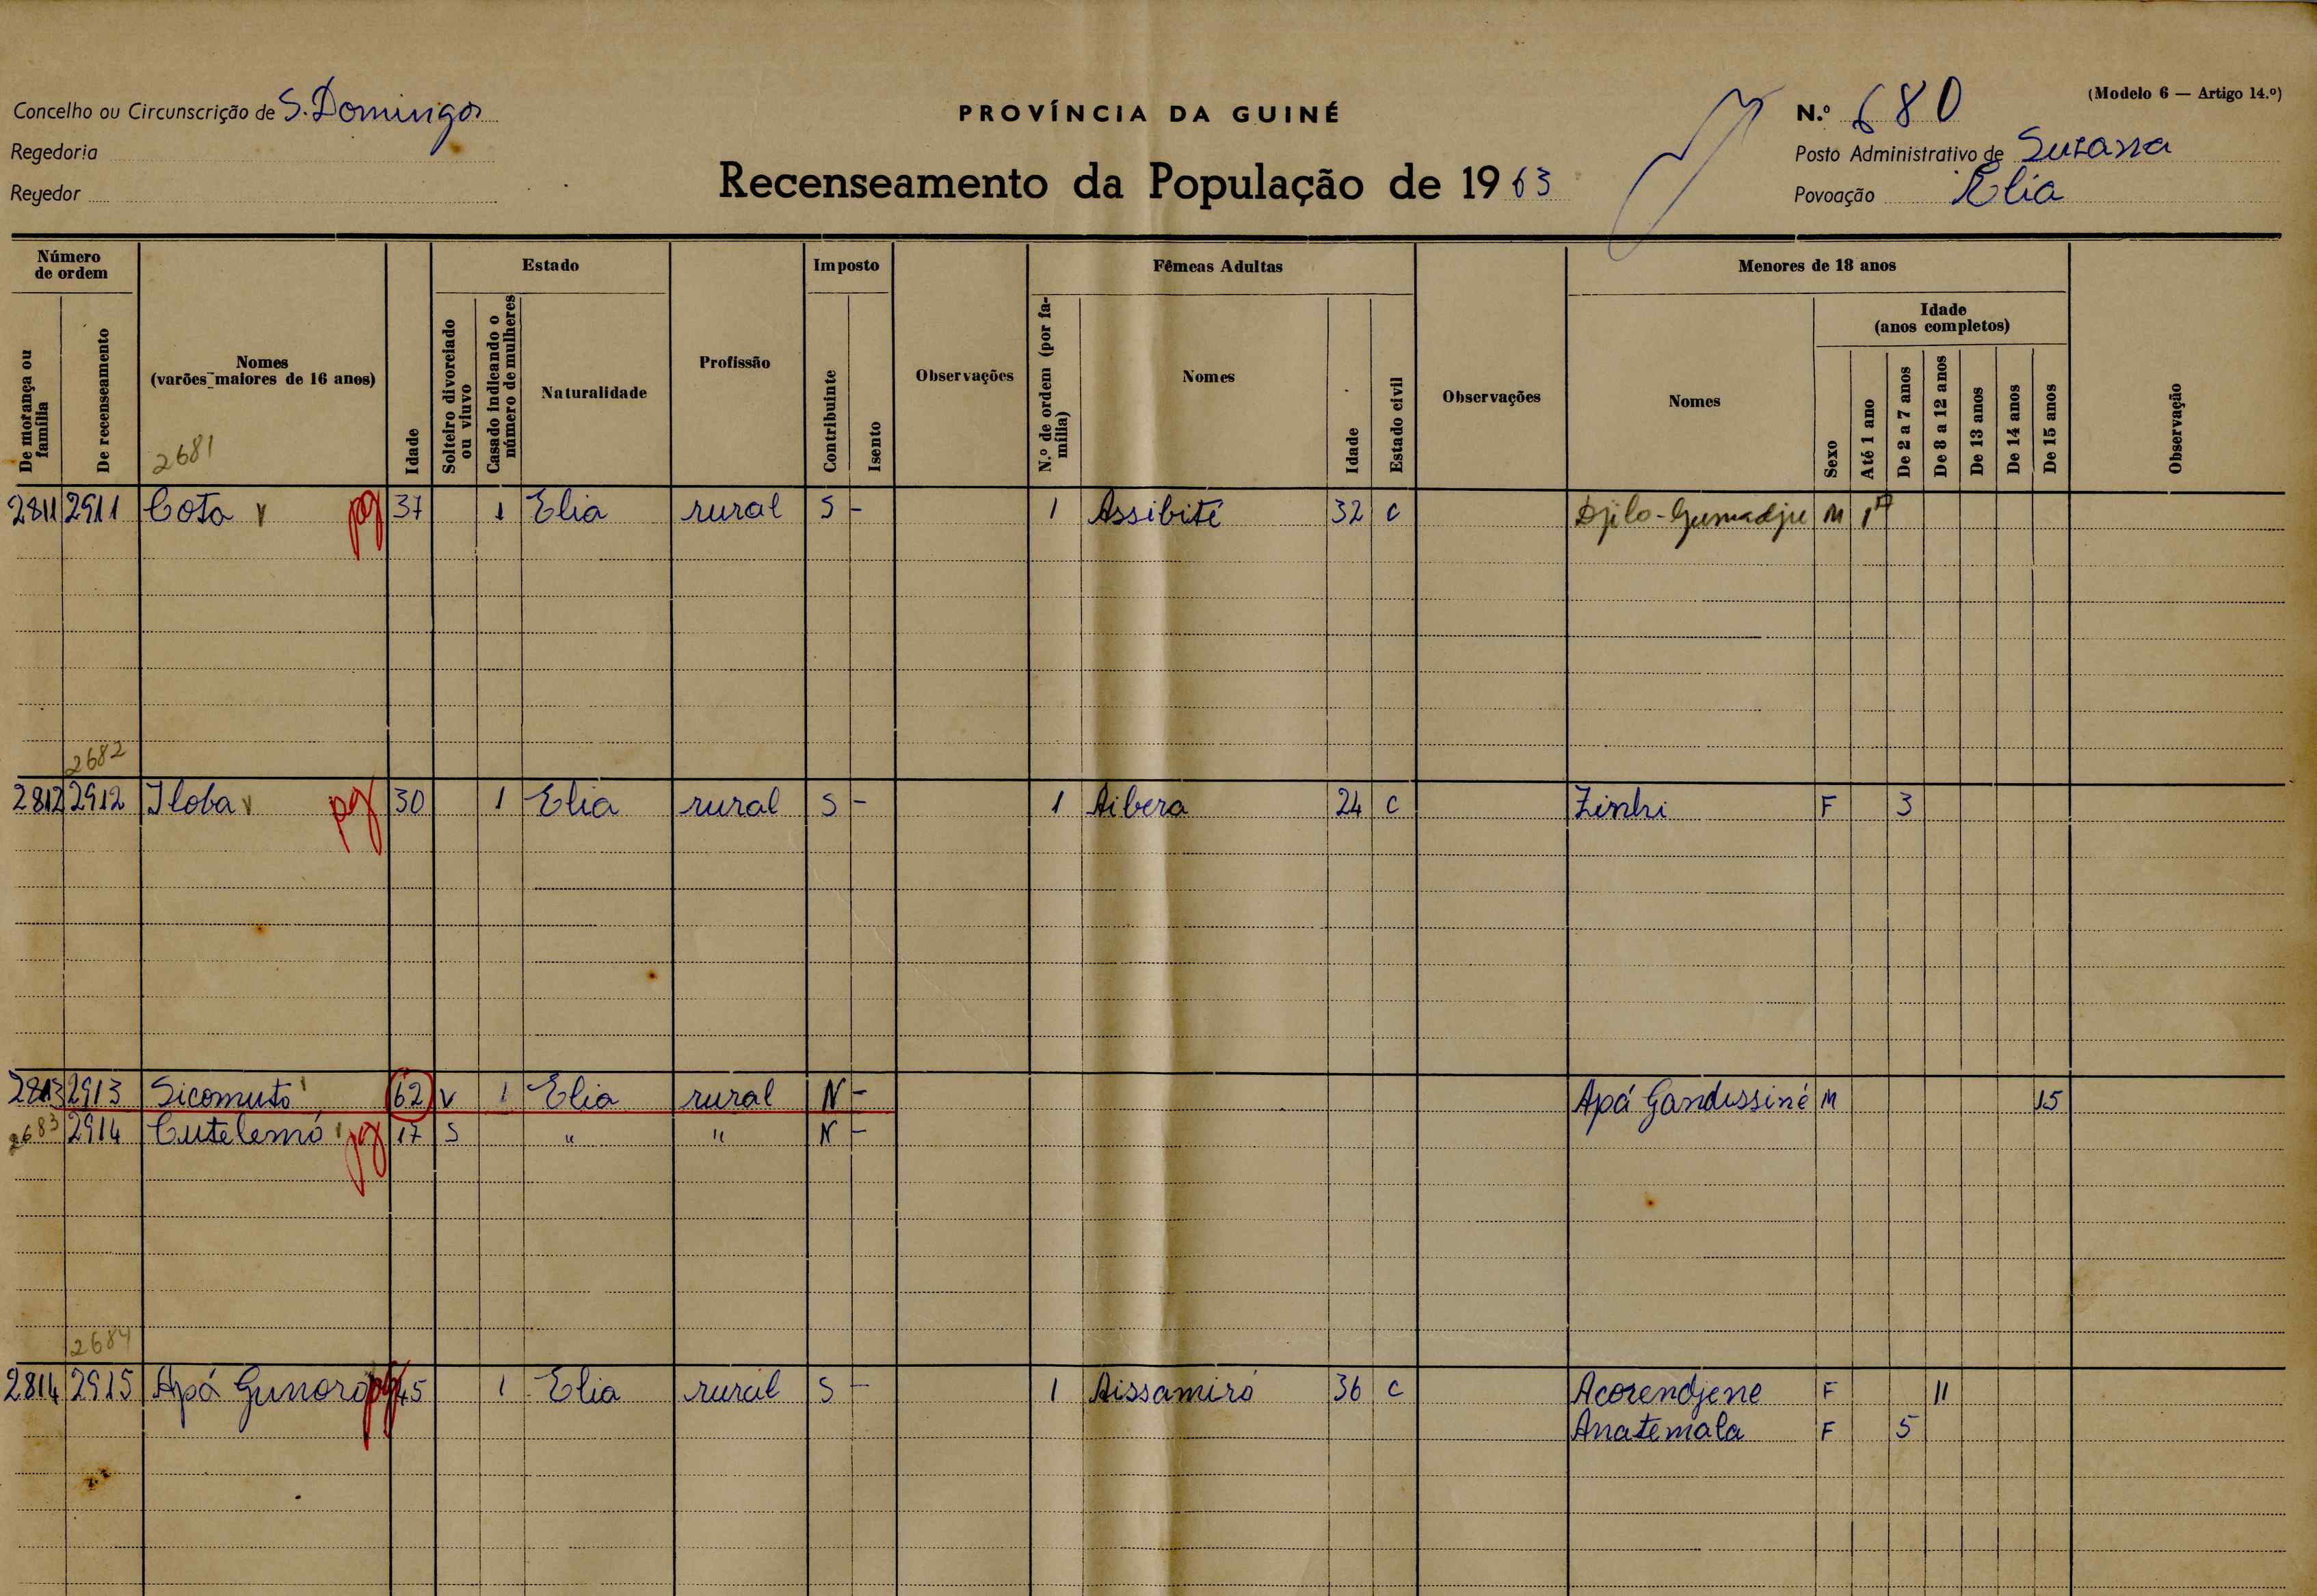 Concelho ou Circunscrição de S. Domingos
Regedoria
Reyedor
PROVÍNCIA DA GUINÉ
Recenseamento da População de 1963
(Modelo 6 — Artigo 14.º)
N.º 680
Posto Administrativo de Susana
Povoação Elia
Número de ordem
De morança ou família
De recenseamento
Nomes
(varões maiores de 16 anos)
2681
Idade
Estado
Solteiro divorciado ou viuvo
Casado indicando o número de mulheres
Naturalidade
Profissão
Imposto
Contribuinte
Isento
Observações
Fêmeas Adultas
N.º de ordem (por família)
Nomes
Idade
Estado civil
Observações
Menores de 18 anos
Nomes
Sexo
Idade
(anos completos)
Até 1 ano
De 2 a 7 anos
De 8 a 12 anos
De 13 anos
De 14 anos
De 15 anos
Observação
2811 2911 Cota pg 37 1 Elia rural S - 1 Assibité 32 C Djilo-Gumadju M 1
2682
2812 2912 Iloba pg 30 1 Elia rural S - 1 Aibera 24 C Zinhi F 3
2813 2913 Sicomuto 62 V 1 Elia rural N - Apá Gandissiné M 15
2683 2914 Cutelemó pg 17 S " " N -
2684
2814 2915 Apá Gunoró pg 45 1 Elia rural S - 1 Aissamiró 36 C Acorendjene F 11
Anatemala F 5